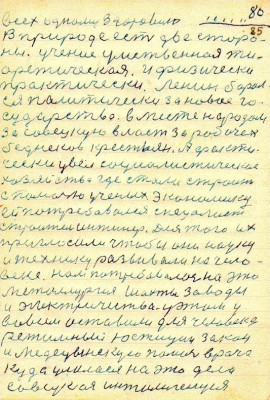 всех одному Здоровию ...... 80
35
В природе ест две сторо
ны. учение умственная ти
аретическая. И физически
практически. Ленин борал
ся политически за новое го
сударство. вместе народом
за совецкую власт за робочех
бедняков крестьян. А практи
чески увёл социалистическое
хозяйство где стали строит
с помочю ученых экономику
ей потребавался специалист
строител инжинер. Для того их
пригласили чтобы они науку
и технику развивали на чело
веке. Нам потребавался на это
металлургия шахты заводы
и электричества. и
воším оставили для человека
юстицыи закон
и медецынскую помоч врача
куда на это дело
совецкая интилигенцея